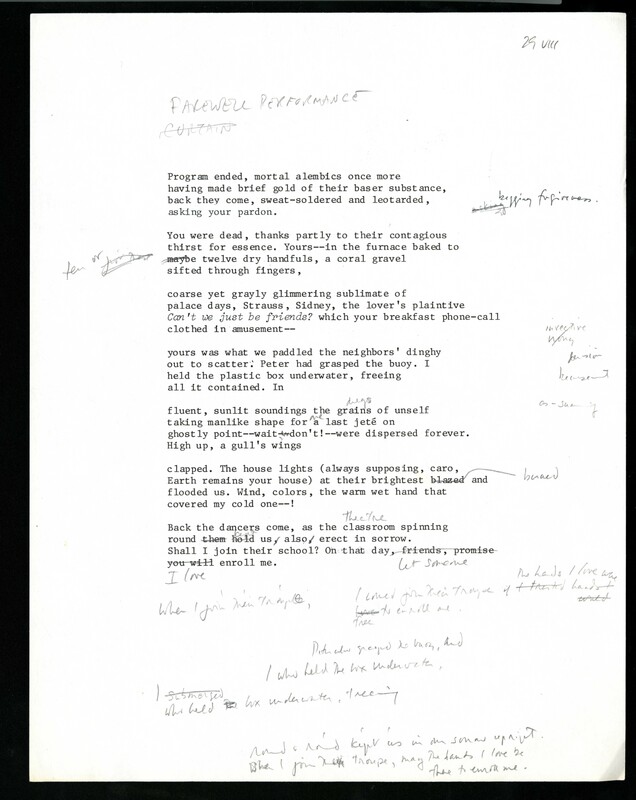 29 VIII
FAREWELL PERFORMANCE
CURTAIN
Program ended, mortal alembics once more
having made brief gold of their baser substance,
back they come, sweat-soldered and leotarded,
asking your pardon.
begging forgiveness.
You were dead, thanks partly to their contagious
thirst for essence. Yours--in the furnace baked to
maybe twelve dry handfuls, a coral gravel
sifted through fingers,
ten or
coarse yet grayly glimmering sublimate of
palace days, Strauss, Sidney, the lover's plaintive
Can't we just be friends? which your breakfast phone-call
clothed in amusement--
yours was what we paddled the neighbors' dinghy
out to scatter. Peter had grasped the buoy. I
held the plastic box underwater, freeing
all it contained. In
dregs
fluent, sunlit soundings the grains of unself
taking manlike shape for a last jeté on
ghostly point--wait--don't!--were dispersed forever.
High up, a gull's wings
clapped. The house lights (always supposing, caro,
Earth remains your house) at their brightest blazed and
burned
flooded us. Wind, colors, the warm wet hand that
covered my cold one--!
Back the dancers come, as the classroom spinning
round them held us, also, erect in sorrow.
Shall I join their school? On that day, friends, promise
you will enroll me.
let someone
I love
When I join their troupe,
to enroll me.
I who held the box underwater,
I
who held box underwater, freeing
round & round kept us in our sorrow upright.
When I join their troupe, may the hands I love be
there to enroll me.